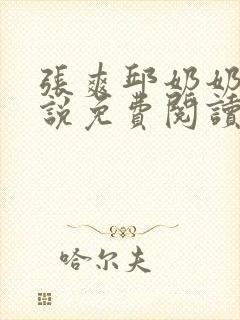 張爽邱奶奶
說免費閱讀
哈尔夫